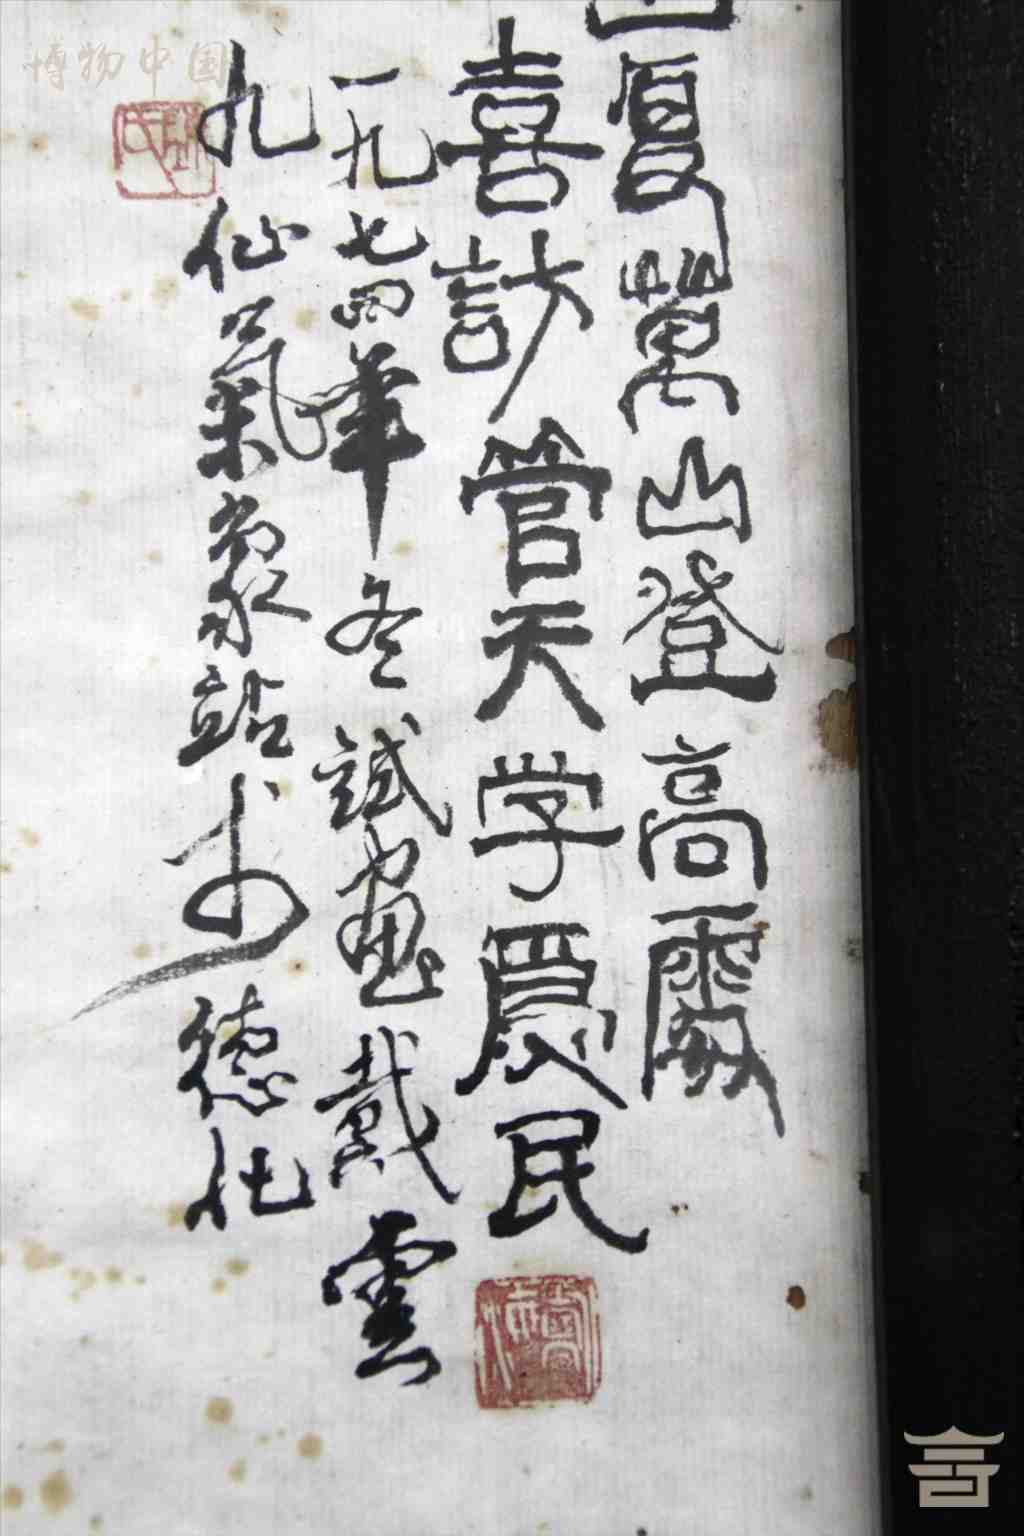 萬山登高
喜訪管天学農民
一九七四年冬試畫戴雲
九仙氣象站於德化
博物中国